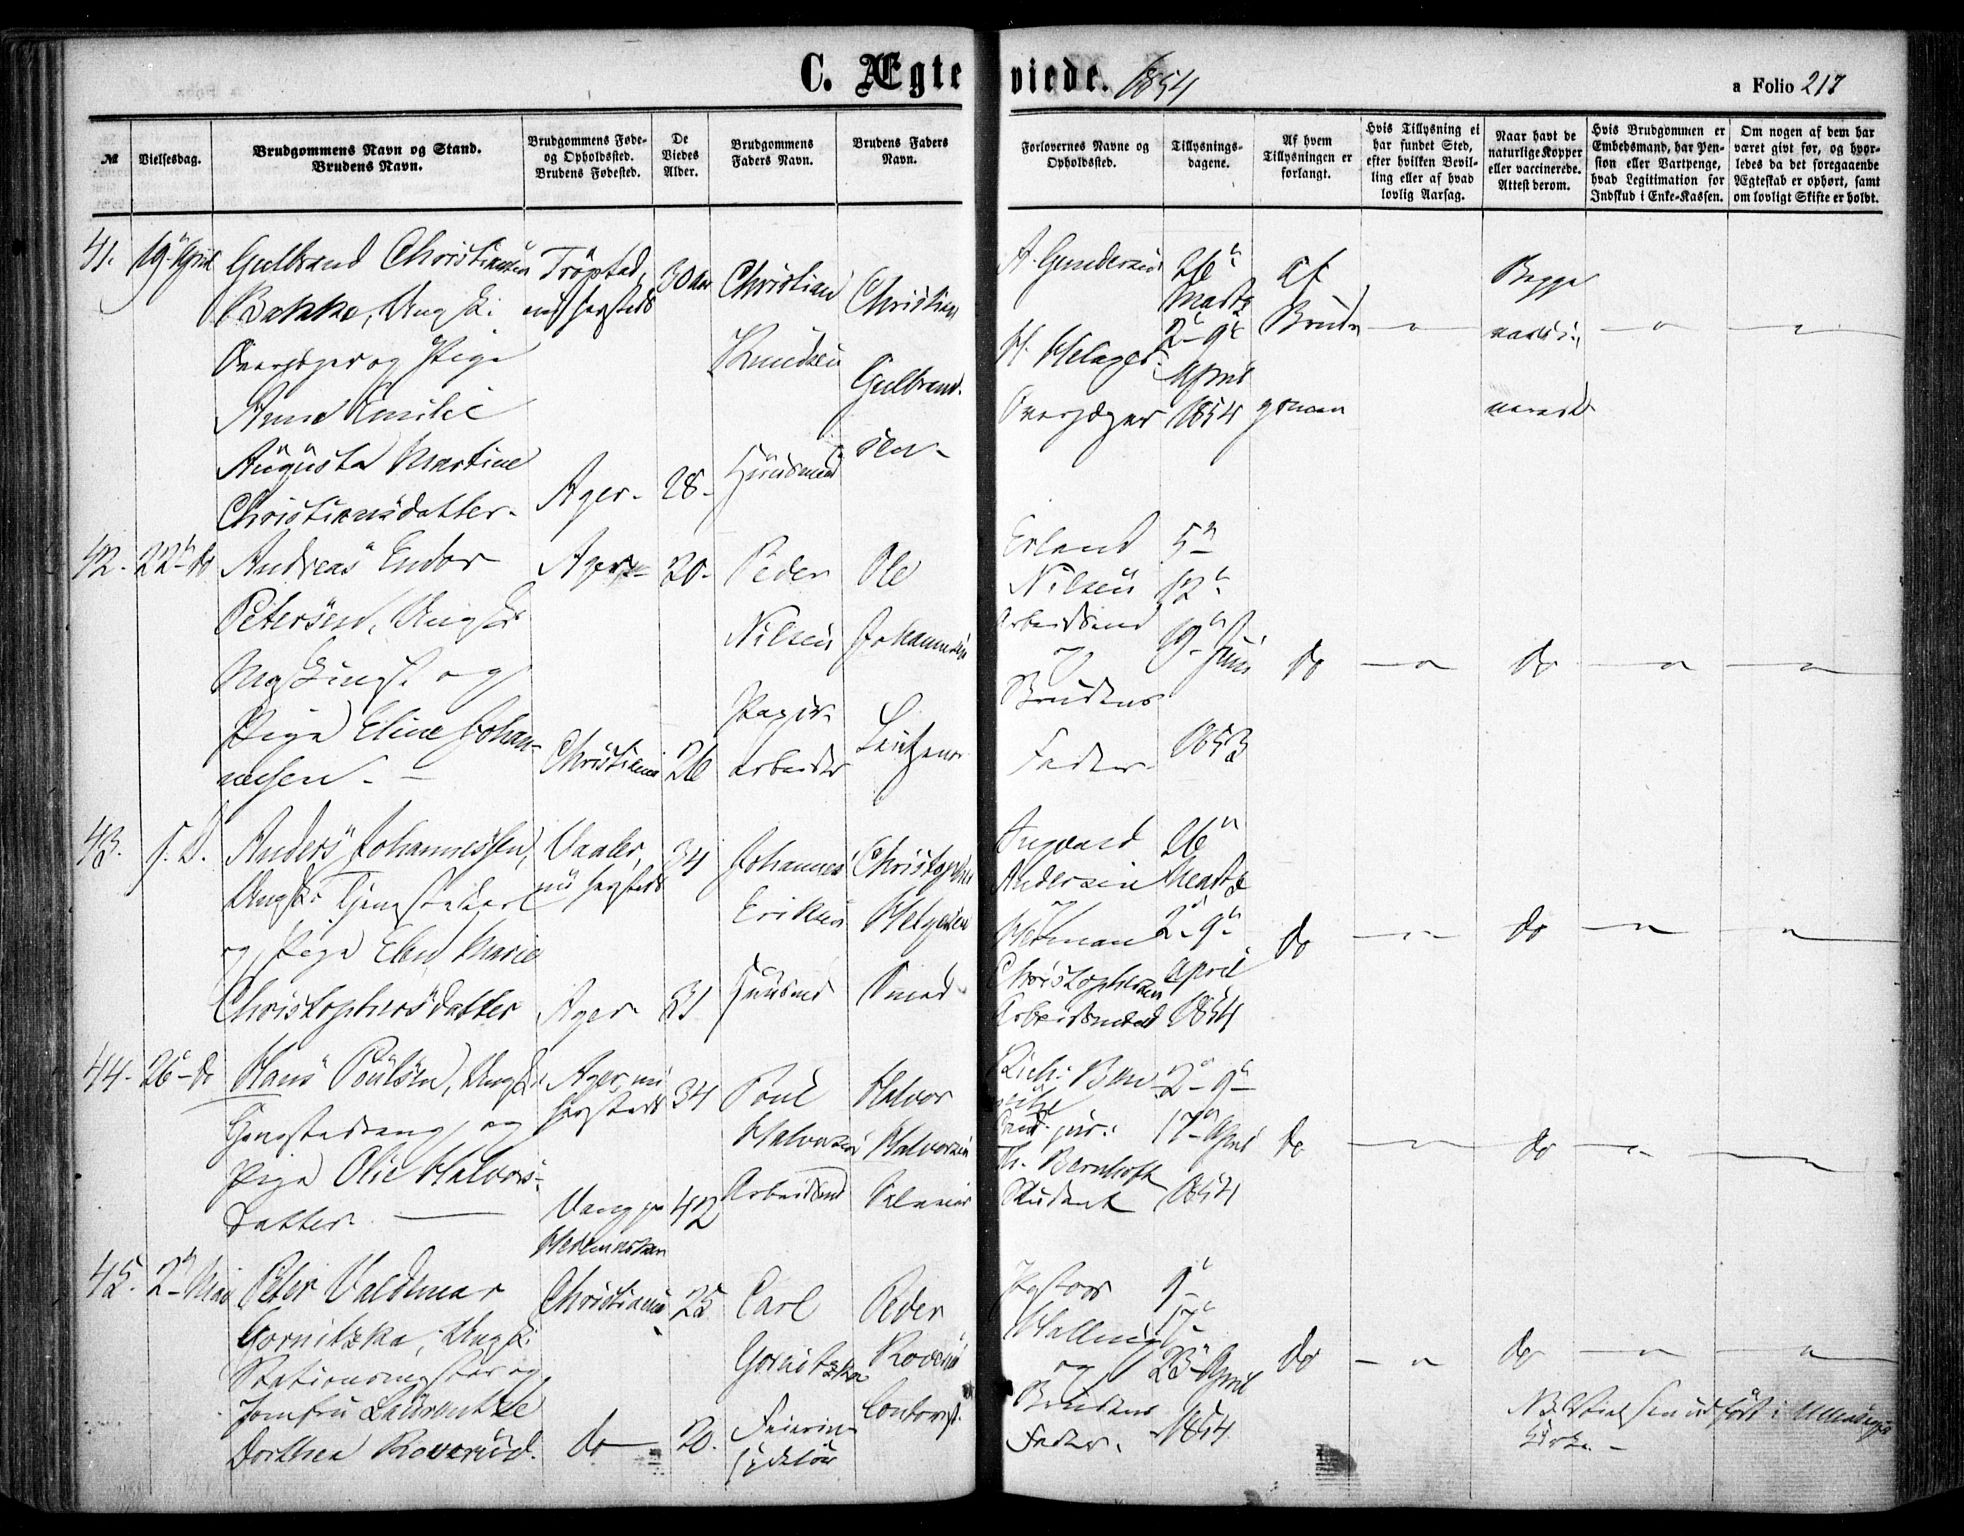 C. Ægteviede. 1854
a Folio 217
№
Vielsesdag.
Brudgommens Navn og Stand.
Brudens Navn.
Brudgommens Føde-
og Opholdssted.
Brudens Fødested.
De
Viedes
Alder.
Brudgommens
Faders Navn.
Brudens Faders
Navn.
Forlovernes Navne og
Opholdssted.
Tillysnings-
dagene.
Af hvem
Tillysningen er
forlangt.
Hvis Tillysning ei
har fundet Sted,
efter hvilken Bevil-
ling eller af hvad
lovlig Aarsag.
Naar havt de
naturlige Kopper
eller vaccinerede.
Attest derom.
Hvis Brudgommen er
Embedsmand, har Pen-
sion eller Vartpenge,
hvad Legitimation for
Indskud i Enke-Kassen.
Om nogen af dem har
været givt før, og hvor-
ledes da det foregaaende
Ægteskab er ophørt, samt
om lovligt Skifte er holdt.
41.
19 April
Gulbrand Christiansen
Bakke, Ungk:
Overjæger og Pige
Anne Emilie
Augusta Martine
Christiansdatter.
Trøgstad,
nu hersteds
Ager.
30 aar
28.
Christian
Knudsen
Huusmand
Christian
Gulbrand-
sen.
A. Gundersen
H. Melager
Overjæger
26
Marts
2- 9
April
1854
af
Brud
gomen
Begge
vacci-
nerede
42.
22 do
Andreas Endor
Petersen, Ungk
Maskinist og
Pige Eline Johan-
nesen.
Ager
Christiania
20.
26
Peder
Nilsen
Papir-
arbeider
Ole
Johannesen
Erland
Nilsen
Arbeidsmd
og
Brudens
Fader.
5
12
19 Juni
1853
do
do
43.
s. D.
Anders Johannessen,
Ungk. Tjenestekarl
og Pige Elen Marie
Christophersdatter
Vaaler,
nu hersteds
Ager
34
31
Johannes
Eriksen
Huusmd
Christopher
Helgesen
Smed
Andersen
og
Herman
Christophersen
Arbeidsmænd
26
Marts
2- 9
April
1854
do
do
44.
26 do
Hans Poulsen, Ungk
Tjenestedreng, og
Pige Olie Halvors-
datter.
Ager, nu
hersteds
Vang paa
Hedemarken
34
42
Poul
Halvorsen
Arbeidsmd
Halvor
Halvorsen
Cand. jur.
Th. Bernhoft
Student
2- 9
17 April
1854
do
do
45.
2 Mai
Peter Valdemar
Gornitzka, Ungk:
Stationsmester og
Jomfru Laurentze
Dorthea Roverud.
Christiania
do
25
20.
Carl
Gornitzka
Peder
Roverud
Contorist.
Pastor
Halling
og
Brudens
Fader.
9
17
23 April
1854
do
do
NB. Vielsen udført i Ullensager
Kirke.